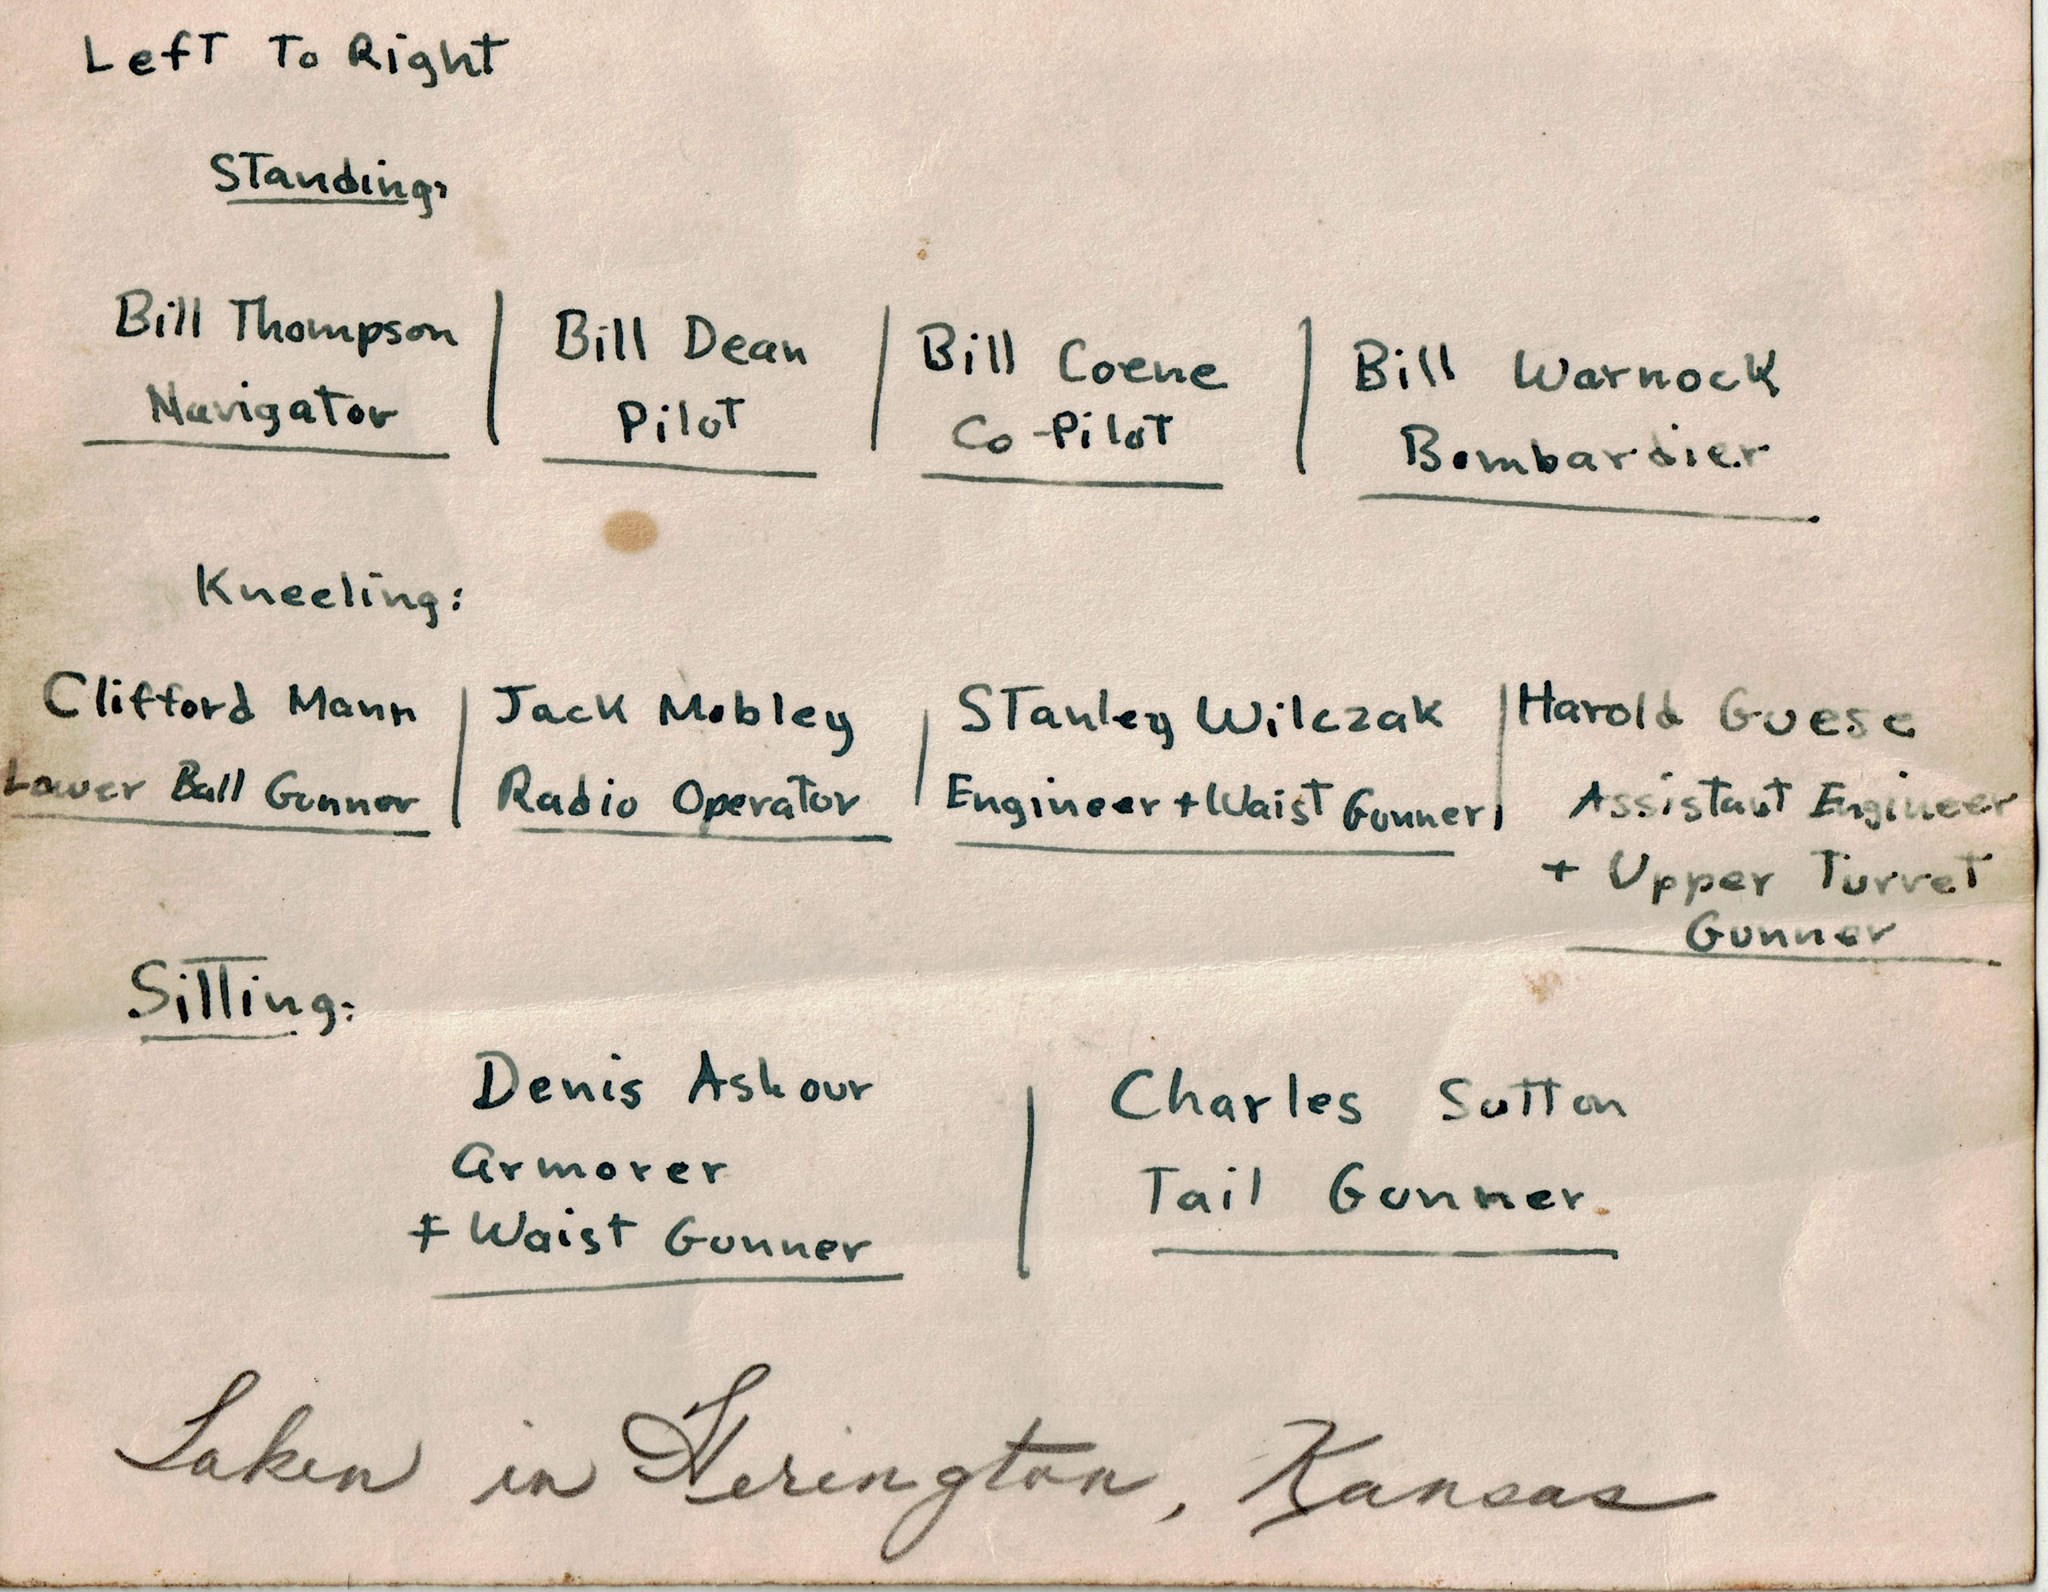 Left To Right
Standing:
Bill Thompson | Bill Dean | Bill Coene | Bill Warnock
Navigator | Pilot | Co-Pilot | Bombardier
Kneeling:
Clifford Mann | Jack Mobley | Stanley Wilczak | Harold Guese
Lower Ball Gunner | Radio Operator | Engineer + Waist Gunner | Assistant Engineer
+ Upper Turret
Gunner
Sitting:
Denis Ashour | Charles Sutton
Armorer | Tail Gunner
+ Waist Gunner
Taken in Herington, Kansas